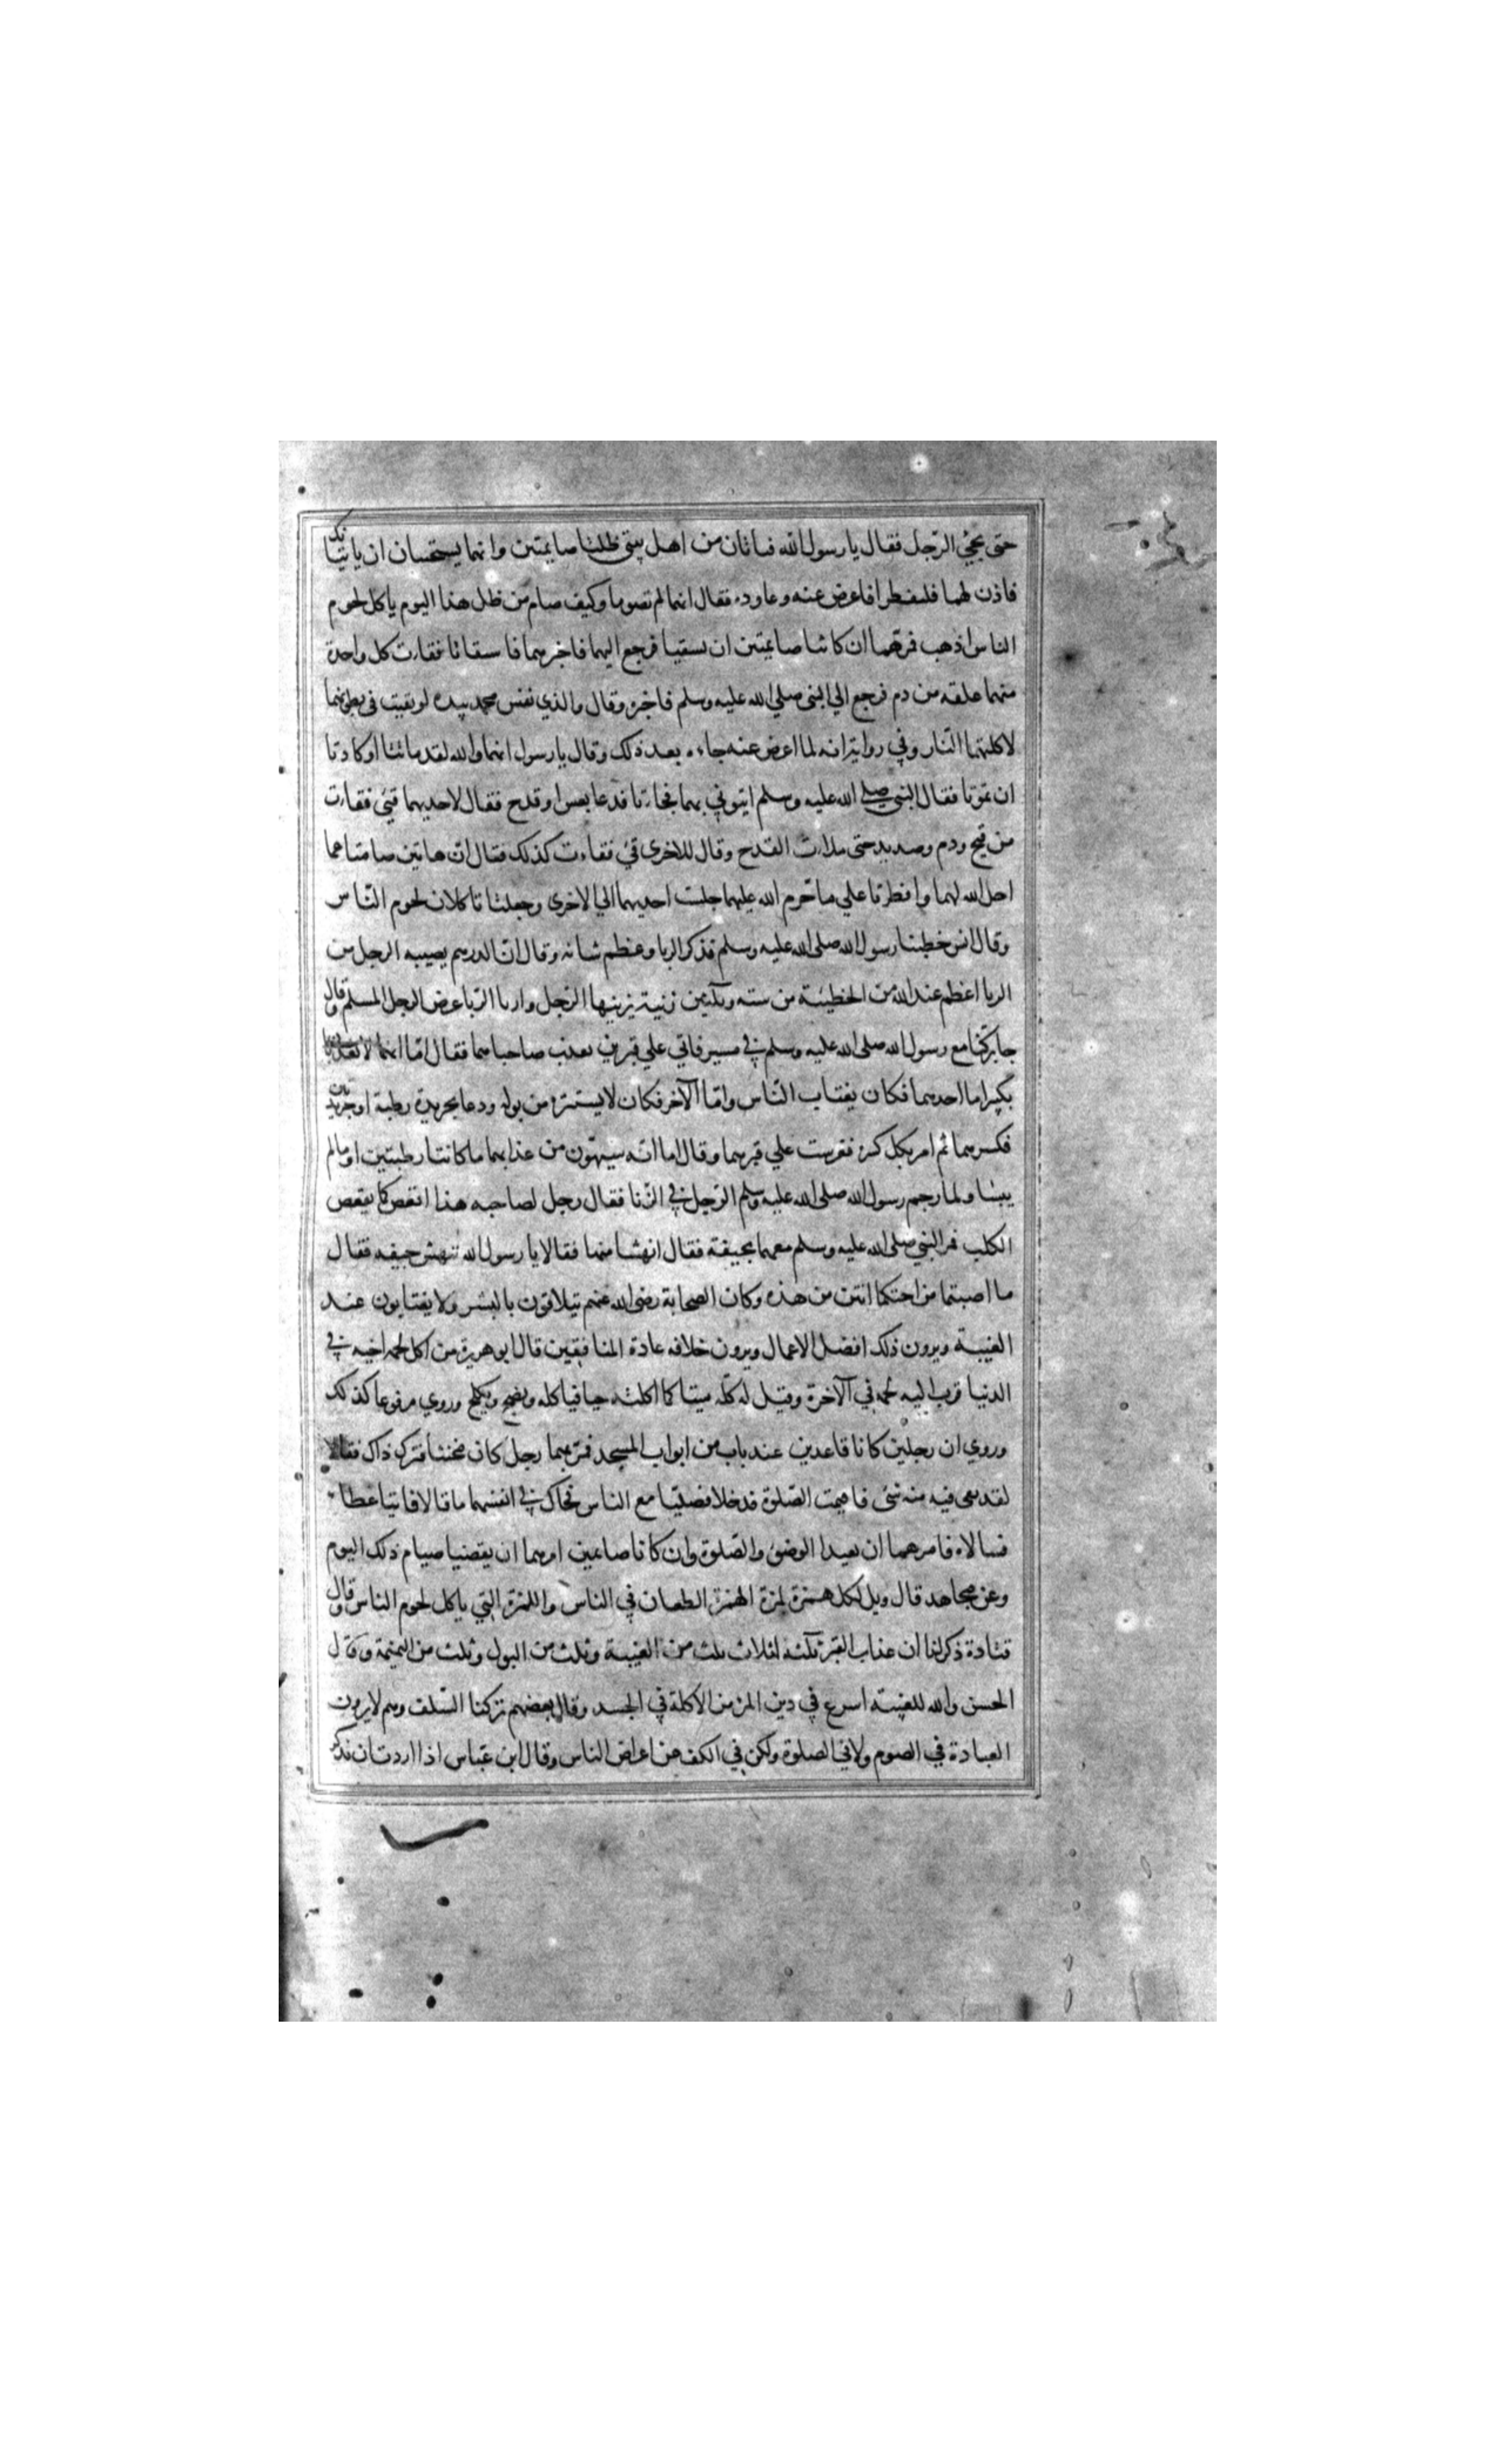 حتى يجئ الرّجل فقال يا رسول الله فتاتان من اهل بيتي ظلتا صايمتين وانهما يستحييان ان ياتياك
فاذن لهما فليفطرا فاعرض عنه وعاوده فقال انهما لم تصوما وكيف صام من ظل هذا اليوم ياكل لحوم
الناس اذهب فمرهما ان كانتا صايمتين ان تستقيا فرجع اليهما فاخبرهما فاستقاتا فقاءت كل واحدة
منهما علقه من دم فرجع الي النبي صلي الله عليه وسلم فاخبره وقال والذي نفس محمد بيده لو بقيت في بطونهما
لاكلتهما النّار وفي رواية انه لما اعرض عنه جاءه بعد ذلك وقال يا رسول انهما والله لقد ماتتا او كادتا
ان تموتا فقال النبي صلي الله عليه وسلم ايتوني بهما فجاءتا فدعا بعس او قدح فقال لاحديهما قيئ فقاءت
من قيح ودم وصديد حتى ملأت القدح وقال للاخرى قئ فقاءت كذلك فقال ان هاتين صامتا عما
احل الله لهما وافطرتا علي ما حرم الله عليهما جلست احديهما الي الاخرى وجعلتا تاكلان لحوم النّاس
وقال انس خطبنا رسول الله صلى الله عليه وسلم فذكر الربا وعظم شانه وقال ان الدرهم يصيبه الرجل من
الربا اعظم عند الله من الخطيئة من ستة وثلثين زنية يزنيها الرّجل واربا الرّبا عرض الرجل المسلم وقال
جابر كنّا مع رسول الله صلى الله عليه وسلم في مسير فاتي علي قبرين يعذب صاحباهما فقال امّا انهما لا يعذبان
بكبير اما احدهما فكان يغتاب النّاس وامّا الآخر فكان لا يستنزه من بوله ودعا بجريدة رطبة او جريدتين
فكسرهما ثم امر بكل كسرة فغرست علي قبرهما وقال اما انّه سيهوّن من عذابهما ما كانتا رطبتين او ما لم
ييبسا ولما رجم رسول الله صلى الله عليه وسلم الرّجل في الزّنا فقال رجل لصاحبه هذا اقعص كما يقعص
الكلب فمر النبي صلى الله عليه وسلم معهما بجيفة فقال انهشا منها فقالا يا رسول الله ننهش جيفه فقال
ما اصبتما من اخيكما انتن من هذه وكان الصحابة رضى الله عنهم يتلاقون بالبشر ولا يغتابون عند
الغيبة ويرون ذلك افضل الاعمال ويرون خلافه عادة المنافقين قال ابو هريرة من اكل لحم اخيه في
الدنيا قرب اليه لحمه في الآخرة وقيل له كله ميتا كما اكلته حيا فياكله ويضج ويكلح وروي مرفوعا كذلك
وروي ان رجلين كانا قاعدين عند باب من ابواب المسجد فمر بهما رجل كان مخنثا فترك ذاك فقالا
لقد بقى فيه منه شئ فاقيمت الصّلوة فدخلا فصلّيا مع الناس فحاك في انفسهما ما قالا فاتيا عطاء
فسالاه فامرهما ان يعيدا الوضوء والصّلوة وان كانا صايمين امرهما ان يقضيا صيام ذلك اليوم
وعن مجاهد قال ويل لكل همزة لمزة الهمزة الطعان في الناس واللمزة التي ياكل لحوم الناس وقال
قتادة ذكر لنا ان عذاب القبر ثلثة اثلاث ثلث من الغيبة وثلث من البول وثلث من النميمة وقال
الحسن والله للغيبته اسرع في دين المرء من الاكلة في الجسد وقال بعضهم تركنا السّلف وهم لا يرون
العبادة في الصوم ولا في الصلوة ولكن في الكف عن اعراض الناس وقال ابن عبّاس اذا اردت ان تذكر